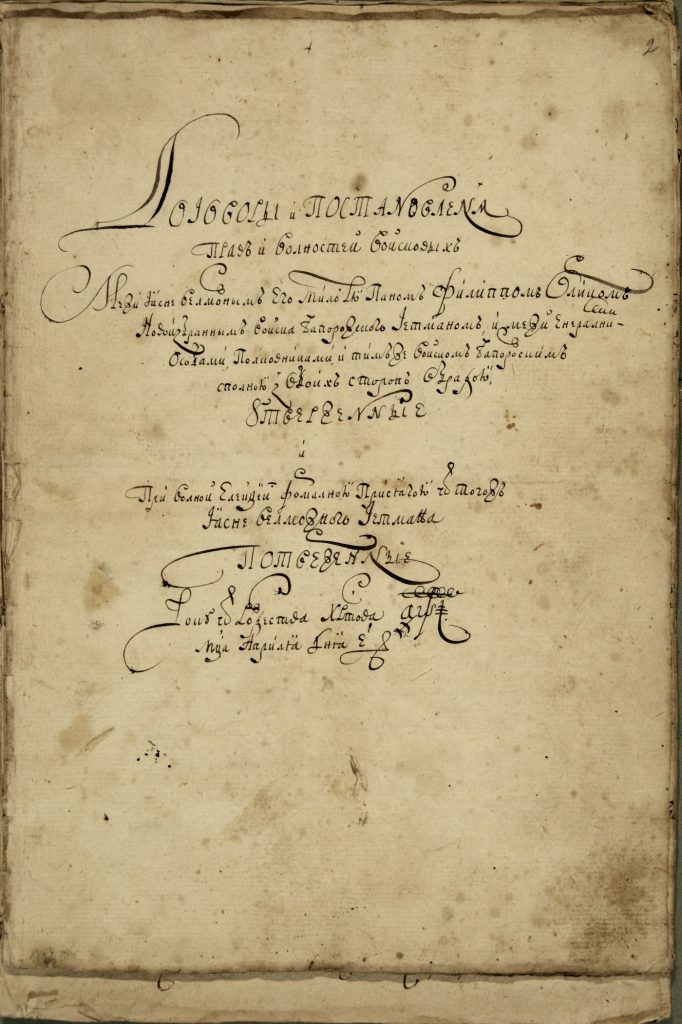 2
Договоры и постановленія
Правъ и волностей войсковыхъ
Межи Ясне велможнымъ Его Милостю Паномъ Филиппомъ Орликомъ
Новоизбраннымъ войска Запорожского Гетманомъ, и межи Енералними
Особами, Полковниками, и тимже войскомъ Запорожскимъ
сполною з обоихъ сторонъ обрадою,
Утвержденные
и
При волной Елекціи формалною присягою ѿ тогожъ
Ясне велможного Гетмана
Потверженные
Року ѿ Рожества Христова аѱі
Мця Априля дня е